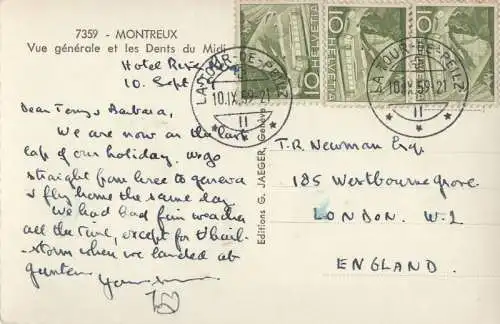 7359 - MONTREUX
Vue générale et les Dents du Midi
Hotel
10. Sept
Dear Terry & Barbara,
We are now on the last
lap of our holiday. We go
straight from here to geneva
& fly home the same day
We had had fine weather
all the time, except for
storm when we landed at
gunten
Editions G. JAEGER, Genève
HELVETIA 10
HELVETIA 10
HELVETIA 10
LA TOUR-DE-PEILZ
10.IX.59-21
II
LA TOUR-DE-PEILZ
10.IX.59-21
II
T.R. Newman Esq.
185 Westbourne grove.
LONDON. W.2
ENGLAND.